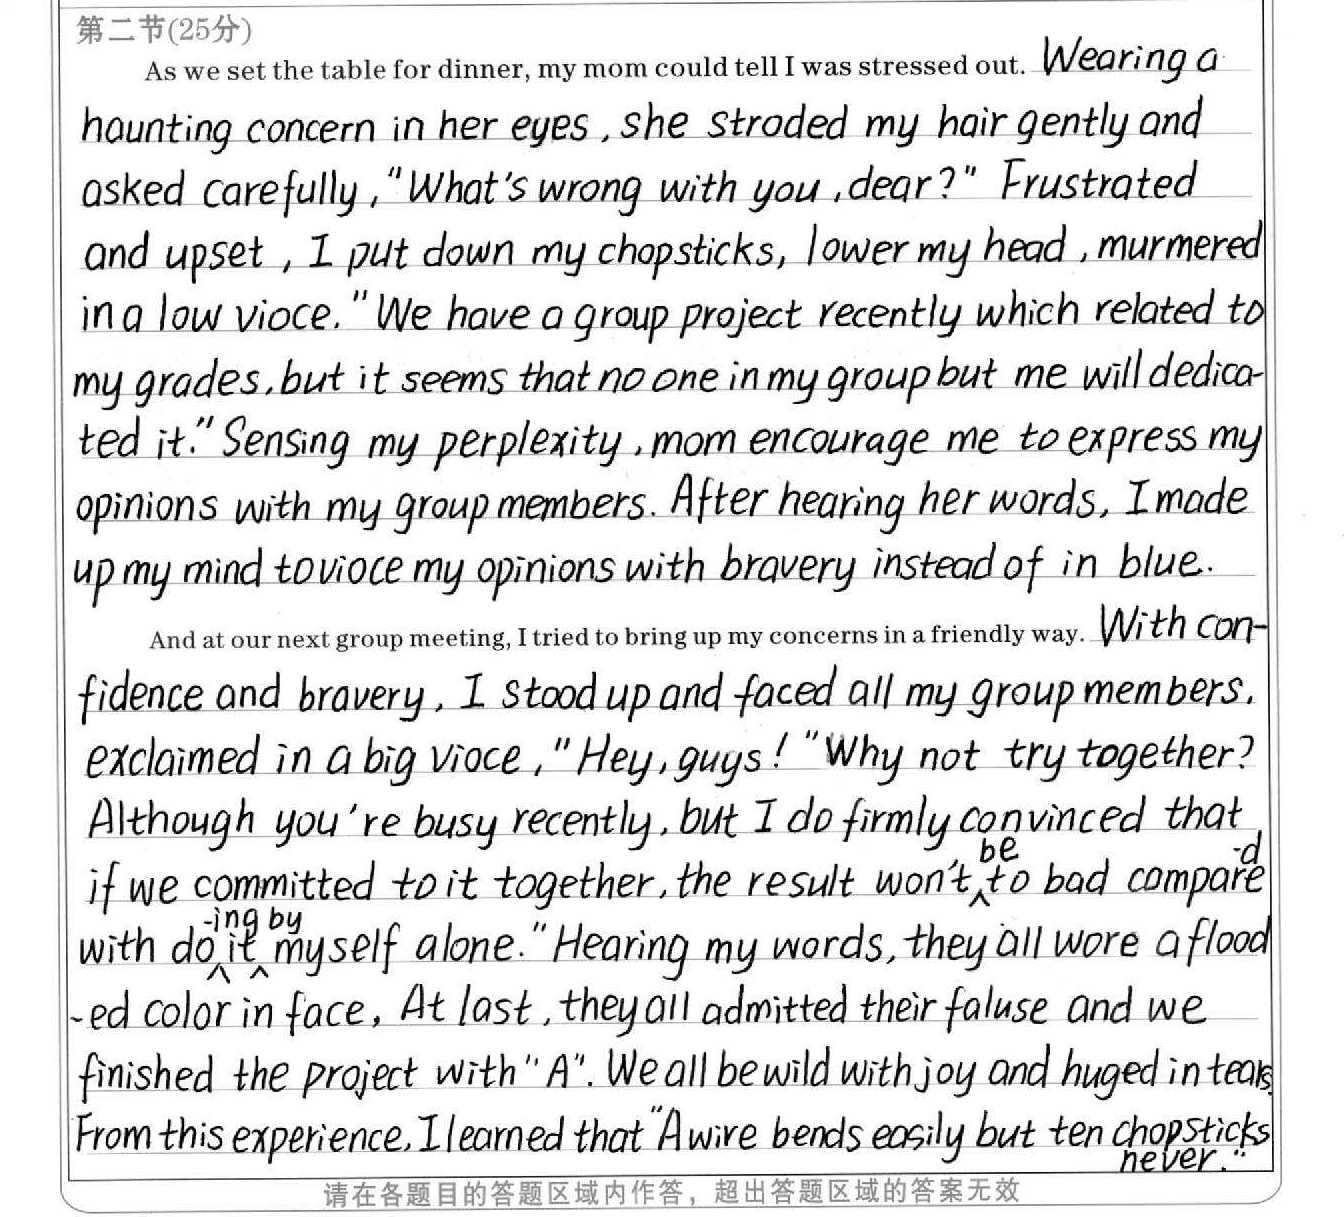 第二节(25分)
As we set the table for dinner, my mom could tell I was stressed out. Wearing a
haunting concern in her eyes, she stroded my hair gently and
asked carefully, "What's wrong with you, dear?" Frustrated
and upset, I put down my chopsticks, lower my head, murmered
in a low vioce. "We have a group project recently which related to
my grades, but it seems that no one in my group but me will dedica-
ted it." Sensing my perplexity, mom encourage me to express my
opinions with my group members. After hearing her words, I made
up my mind to vioce my opinions with bravery instead of in blue.
And at our next group meeting, I tried to bring up my concerns in a friendly way. With con-
fidence and bravery, I stood up and faced all my group members,
exclaimed in a big vioce, "Hey, guys! "Why not try together?
Although you're busy recently, but I do firmly convinced that
if we committed to it together, the result won't be to bad compare-d
with do-ing it by myself alone." Hearing my words, they all wore a flood
-ed color in face, At last, they all admitted their faluse and we
finished the project with "A". We all be wild with joy and huged in tears.
From this experience, I learned that "A wire bends easily but ten chopsticks
never."
请在各题目的答题区域内作答，超出答题区域的答案无效